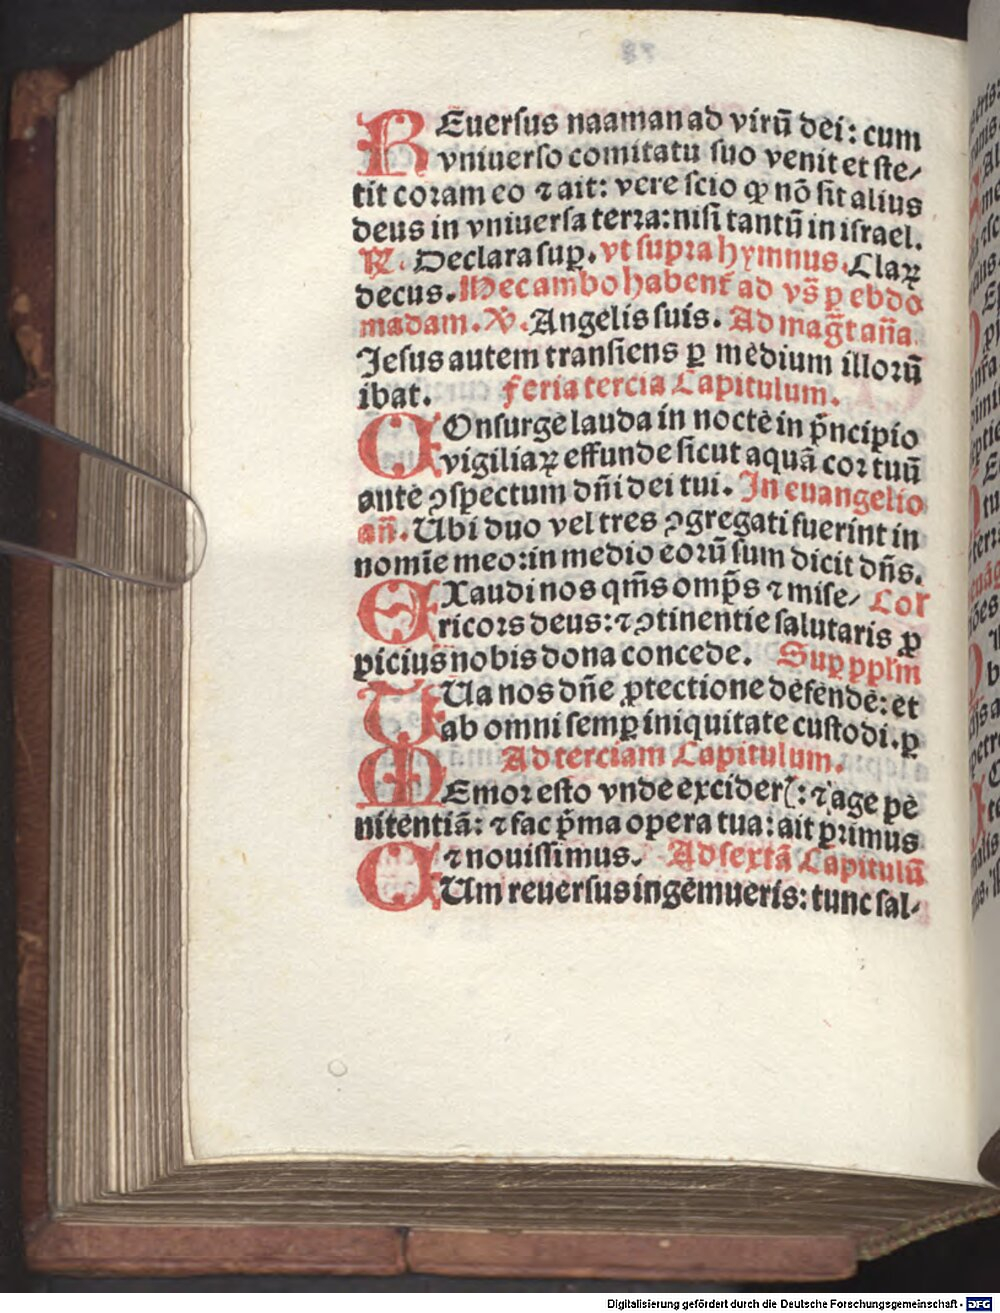 REuersus naaman ad virū dei: cum
vniuerso comitatu suo venit et ste/
tit coram eo ⁊ ait: vere scio ꝙ nō sit alius
deus in vniuersa terra: nisi tantū in israel.
℟. Declara suꝑ. vt supra hymnus. Claꝝ
decus. Hec ambo habent̄ ad vs̄ ꝑ ebdo
madam. ℣. Angelis suis. Ad mag̅t an̄a
Jesus autem transiens ꝑ medium illorū
ibat. Feria tercia Capitulum.
COnsurge lauda in nocte in pͥncipio
vigiliaꝝ effunde sicut aquā cor tuū
ante ꝯspectum dn̄i dei tui. In euangelio
an̄. Ubi duo vel tres ꝯgregati fuerint in
nomīe meo: in medio eorū sum dicit dn̄s.
EXaudi nos qm̄s omp̄s ⁊ mise/ Col
ricors deus: ⁊ ꝯtinentie salutaris ꝓ
picius nobis dona concede. Suꝑ pplm̄
TUa nos dn̄e ꝓtectione defende: et
ab omni semꝑ iniquitate custodi. ꝑ
Ad terciam Capitulum.
MEmor esto vnde excider̄: ⁊ age pe
nitentiā: ⁊ fac pͥma opera tua: ait primus
⁊ nouissimus. Ad sextā Capitulū
CUm reuersus ingemueris: tunc sal/
Digitalisierung gefördert durch die Deutsche Forschungsgemeinschaft - DFG